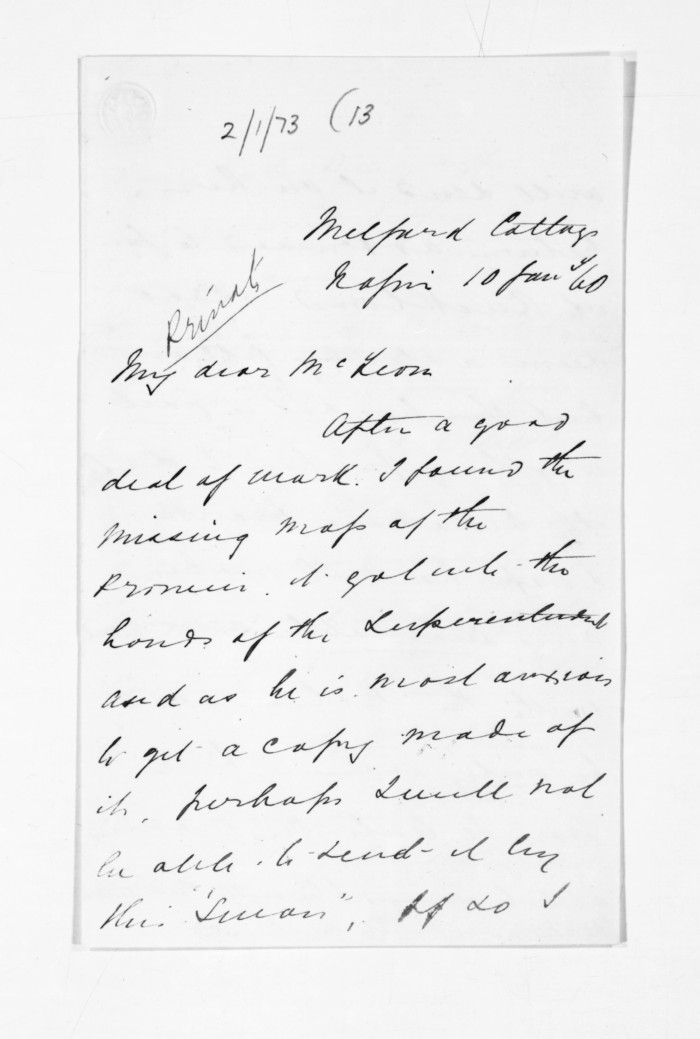 2/1/73 (13
Melford Cottage
Napier 10 Jany 60
Private
My dear McLean
After a good
deal of work. I found the
missing map of the
Province. it got into the
hands of the Superintendent
and as he is most anxious
to get a copy made of
it, perhaps I will not
be able to send it by
this "Swan", If so I